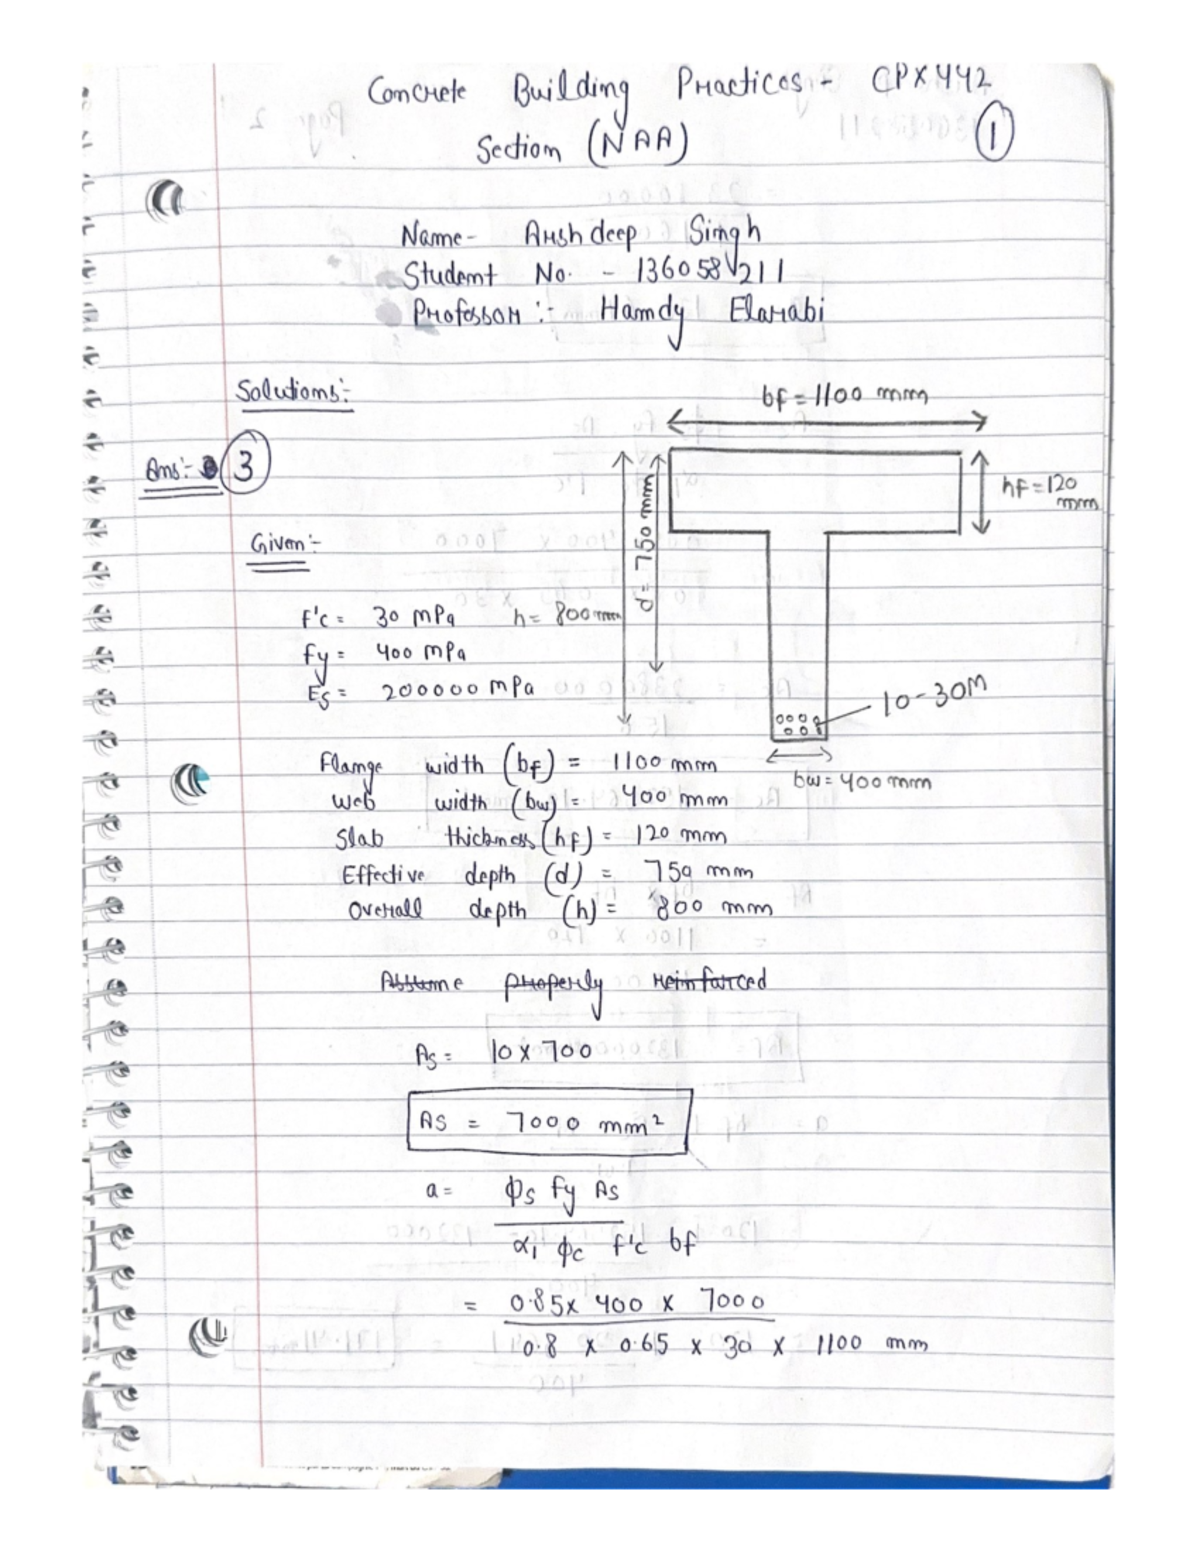 Concrete Building Practices - CPX442
Section (NAA)
1
Name - Arshdeep Singh
Student No. - 136058211
Professor :- Hamdy Elarabi
Solutions:-
bf = 1100 mm
Ans:- 3
hf = 120 mm
d = 750 mm
Given:-
f'c = 30 mPa h = 800 mm
fy = 400 mPa
Es = 200000 mPa
10-30M
bw = 400 mm
Flange width (bf) = 1100 mm
Web width (bw) = 400 mm
Slab thickness (hf) = 120 mm
Effective depth (d) = 750 mm
Overall depth (h) = 800 mm
Assume properly reinforced
As = 10 x 700
AS = 7000 mm²
a = ϕs fy As
α1 ϕc f'c bf
= 0.85 x 400 x 7000
0.8 x 0.65 x 30 x 1100 mm